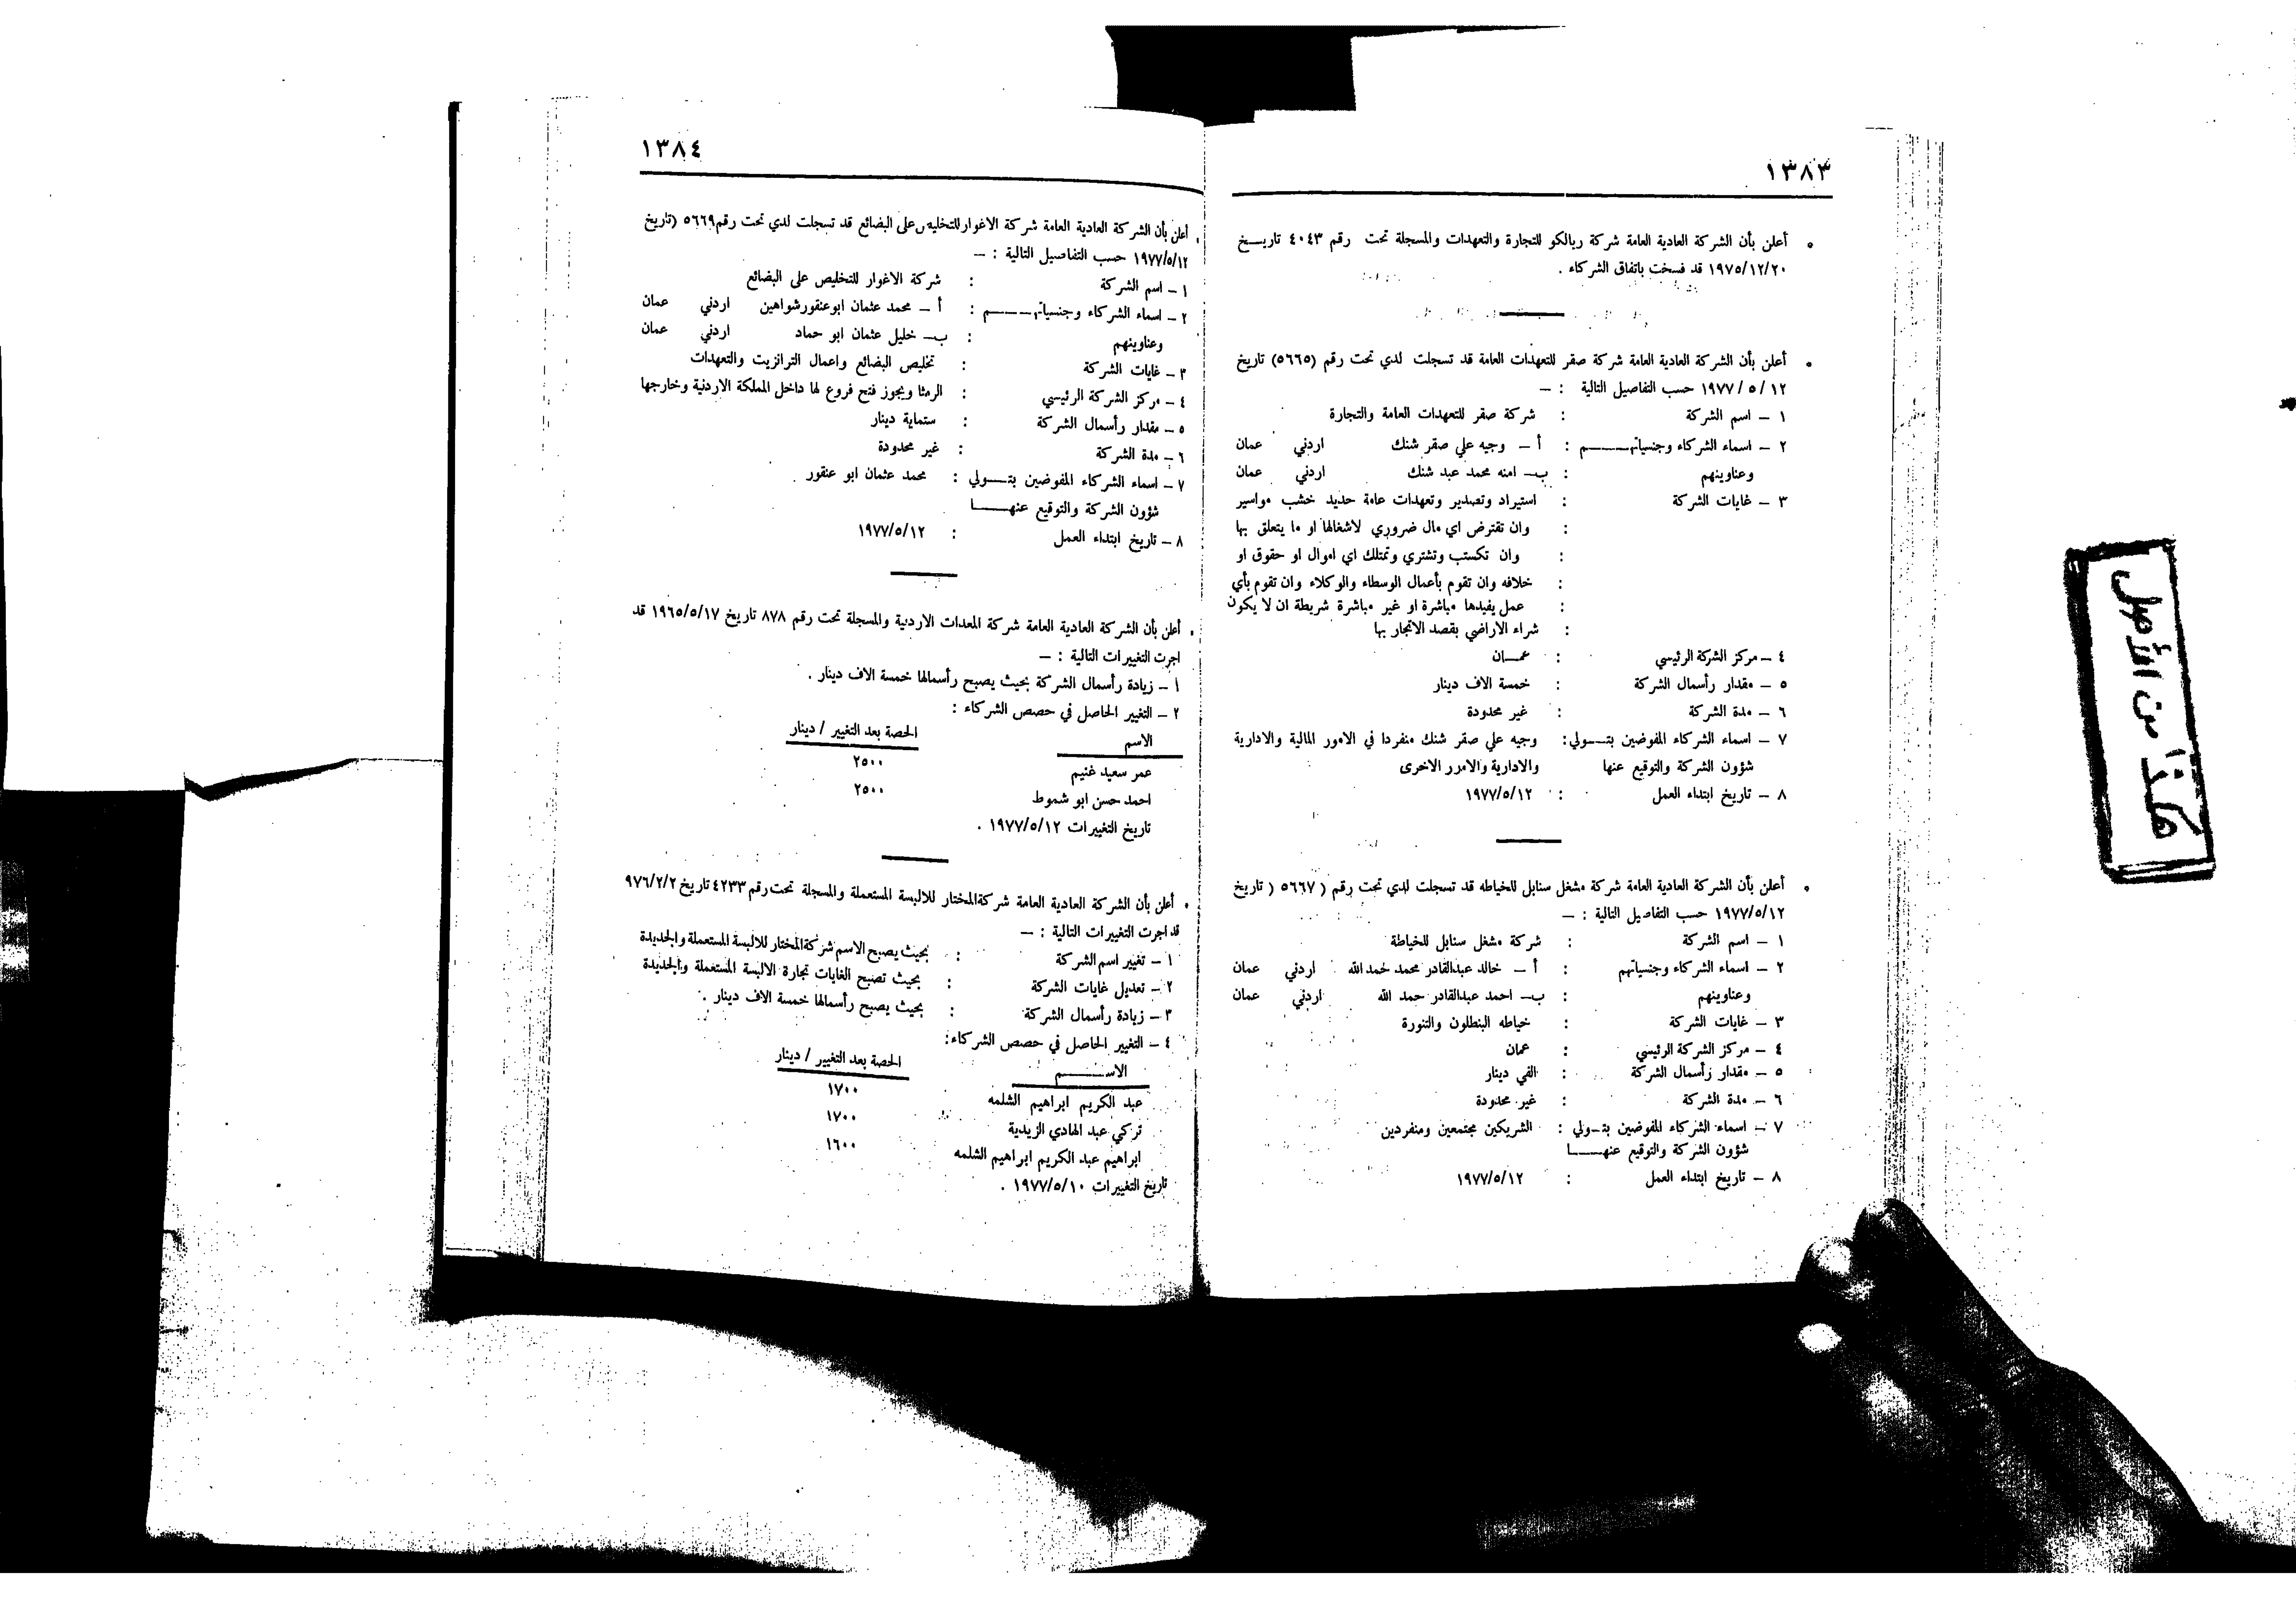 ١٣٨٣
• أعلن بأن الشركة العادية العامة شركة ريالكو للتجارة والتعهدات والمسجلة تحت رقم ٤٠٤٣ تاريـــخ
١٩٧٥/١٢/٢٠ قد فسخت باتفاق الشركاء .
• أعلن بأن الشركة العادية العامة شركة صقر للتعهدات العامة قد تسجلت لدي تحت رقم (٥٦٦٥) تاريخ
١٢ / ٥ / ١٩٧٧ حسب التفاصيل التالية : —
١ — اسم الشركة : شركة صقر للتعهدات العامة والتجارة
٢ — اسماء الشركاء وجنسياتهـــــم : أ — وجيه علي صقر شنك اردني عمان
وعناوينهم : ب— امنه محمد عبد شنك اردني عمان
٣ — غايات الشركة : استيراد وتصدير وتعهدات عامة حديد خشب مواسير
: وان تقترض اي مال ضروري لاشغالها او ما يتعلق بها
: وان تكتسب وتشتري وتمتلك اي اموال او حقوق او
: خلافه وان تقوم بأعمال الوسطاء والوكلاء وان تقوم بأي
: عمل يفيدها مباشرة او غير مباشرة شريطة ان لا يكون
: شراء الاراضي بقصد الاتجار بها
٤ — مركز الشركة الرئيسي : عمـــان
٥ — مقدار رأسمال الشركة : خمسة الاف دينار
٦ — مدة الشركة : غير محدودة
٧ — اسماء الشركاء المفوضين بتـــولي: وجيه علي صقر شنك منفردا في الامور المالية والادارية
شؤون الشركة والتوقيع عنها والادارية والامرر الاخرى
٨ — تاريخ ابتداء العمل : ١٩٧٧/٥/١٢
• أعلن بأن الشركة العادية العامة شركة مشغل سنابل للخياطه قد تسجلت لدي تحت رقم ( ٥٦٦٧ ( تاريخ
١٩٧٧/٥/١٢ حسب التفاصيل التالية : —
١ — اسم الشركة : شركة مشغل سنابل للخياطة
٢ — اسماء الشركاء وجنسياتهم : أ — خالد عبدالقادر محمد حمد الله اردني عمان
وعناوينهم : ب— احمد عبدالقادر حمد الله اردني عمان
٣ — غايات الشركة : خياطه البنطلون والتنورة
٤ — مركز الشركة الرئيسي : عمان
٥ — مقدار رأسمال الشركة : الفي دينار
٦ — مدة الشركة : غير محدودة
٧ — اسماء الشركاء المفوضين بتـولي : الشريكين مجتمعين ومنفردين
شؤون الشركة والتوقيع عنهــــا
٨ — تاريخ ابتداء العمل : ١٩٧٧/٥/١٢
١٣٨٤
• أعلن بأن الشركة العادية العامة شركة الاغوار للتخليص على البضائع قد تسجلت لدي تحت رقم ٥٦٦٩ (تاريخ
١٩٧٧/٥/١٢ حسب التفاصيل التالية : —
١ — اسم الشركة : شركة الاغوار للتخليص على البضائع
٢ — اسماء الشركاء وجنسياتهـــــم : أ — محمد عثمان ابوعنقورشواهين اردني عمان
وعناوينهم : ب— خليل عثمان ابو حماد اردني عمان
٣ — غايات الشركة : تخليص البضائع واعمال الترانزيت والتعهدات
٤ — مركز الشركة الرئيسي : الرمثا ويجوز فتح فروع لها داخل المملكة الاردنية وخارجها
٥ — مقدار رأسمال الشركة : ستماية دينار
٦ — مدة الشركة : غير محدودة
٧ — اسماء الشركاء المفوضين بتـــولي : محمد عثمان ابو عنقور .
شؤون الشركة والتوقيع عنهــــا
٨ — تاريخ ابتداء العمل : ١٩٧٧/٥/١٢
• أعلن بأن الشركة العادية العامة شركة المعدات الاردنية والمسجلة تحت رقم ٨٧٨ تاريخ ١٩٦٥/٥/١٧ قد
اجرت التغييرات التالية : —
١ — زيادة رأسمال الشركة بحيث يصبح رأسمالها خمسة الاف دينار .
٢ — التغيير الحاصل في حصص الشركاء :
الاسم الحصة بعد التغيير / دينار
عمر سعيد غنيم ٢٥٠٠
احمد حسن ابو شموط ٢٥٠٠
تاريخ التغييرات ١٩٧٧/٥/١٢ .
• أعلن بأن الشركة العادية العامة شركةالمختار للالبسة المستعملة والمسجلة تحت رقم ٤٢٣٣ تاريخ ٩٧٦/٢/٢
قد اجرت التغييرات التالية : —
١ — تغيير اسم الشركة : بحيث يصبح الاسم شركةالمختار للالبسة المستعملة والجديدة
٢ — تعديل غايات الشركة : بحيث تصبح الغايات تجارة الالبسة المستعملة والجديدة
٣ — زيادة رأسمال الشركة : بحيث يصبح رأسمالها خمسة الاف دينار .
٤ — التغيير الحاصل في حصص الشركاء:
الاســـــم الحصة بعد التغيير / دينار
عبد الكريم ابراهيم الشلمه ١٧٠٠
تركي عبد الهادي الزيدية ١٧٠٠
ابراهيم عبد الكريم ابراهيم الشلمه ١٦٠٠
تاريخ التغييرات ١٩٧٧/٥/١٠ .
هكذا من الأصل